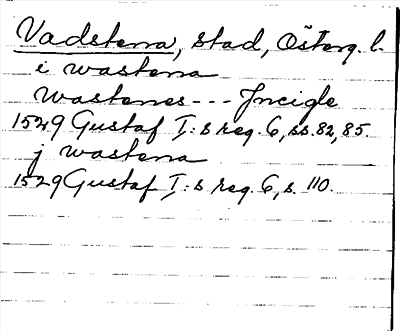 Vadstena, stad, Österg. l.
i wastena
Wastenes --- Incigle
1529 Gustaf I:s reg. 6, ss. 82, 85.
j wastena
1529 Gustaf I:s reg. 6, s. 110.